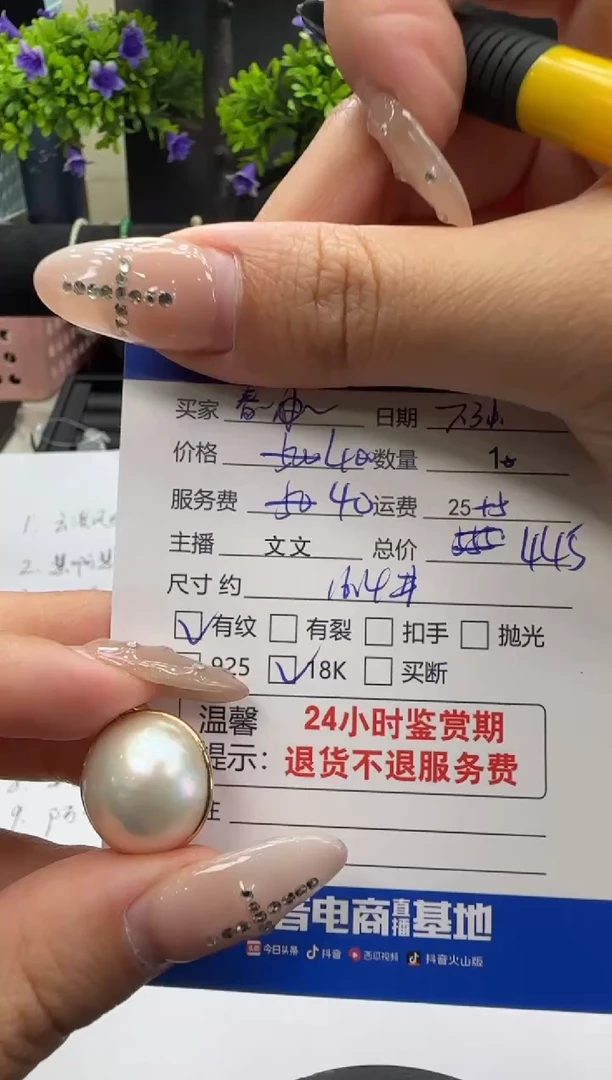 买家 日期
价格 400 数量 1
服务费 40 运费 25
主播 文文 总价 445
尺寸 约
有纹 有裂 扣手 抛光
925 18K 买断
温馨 24小时鉴赏期
提示: 退货不退服务费
电商直播基地
今日头条 抖音 西瓜视频 抖音火山版
1.
2.
9.